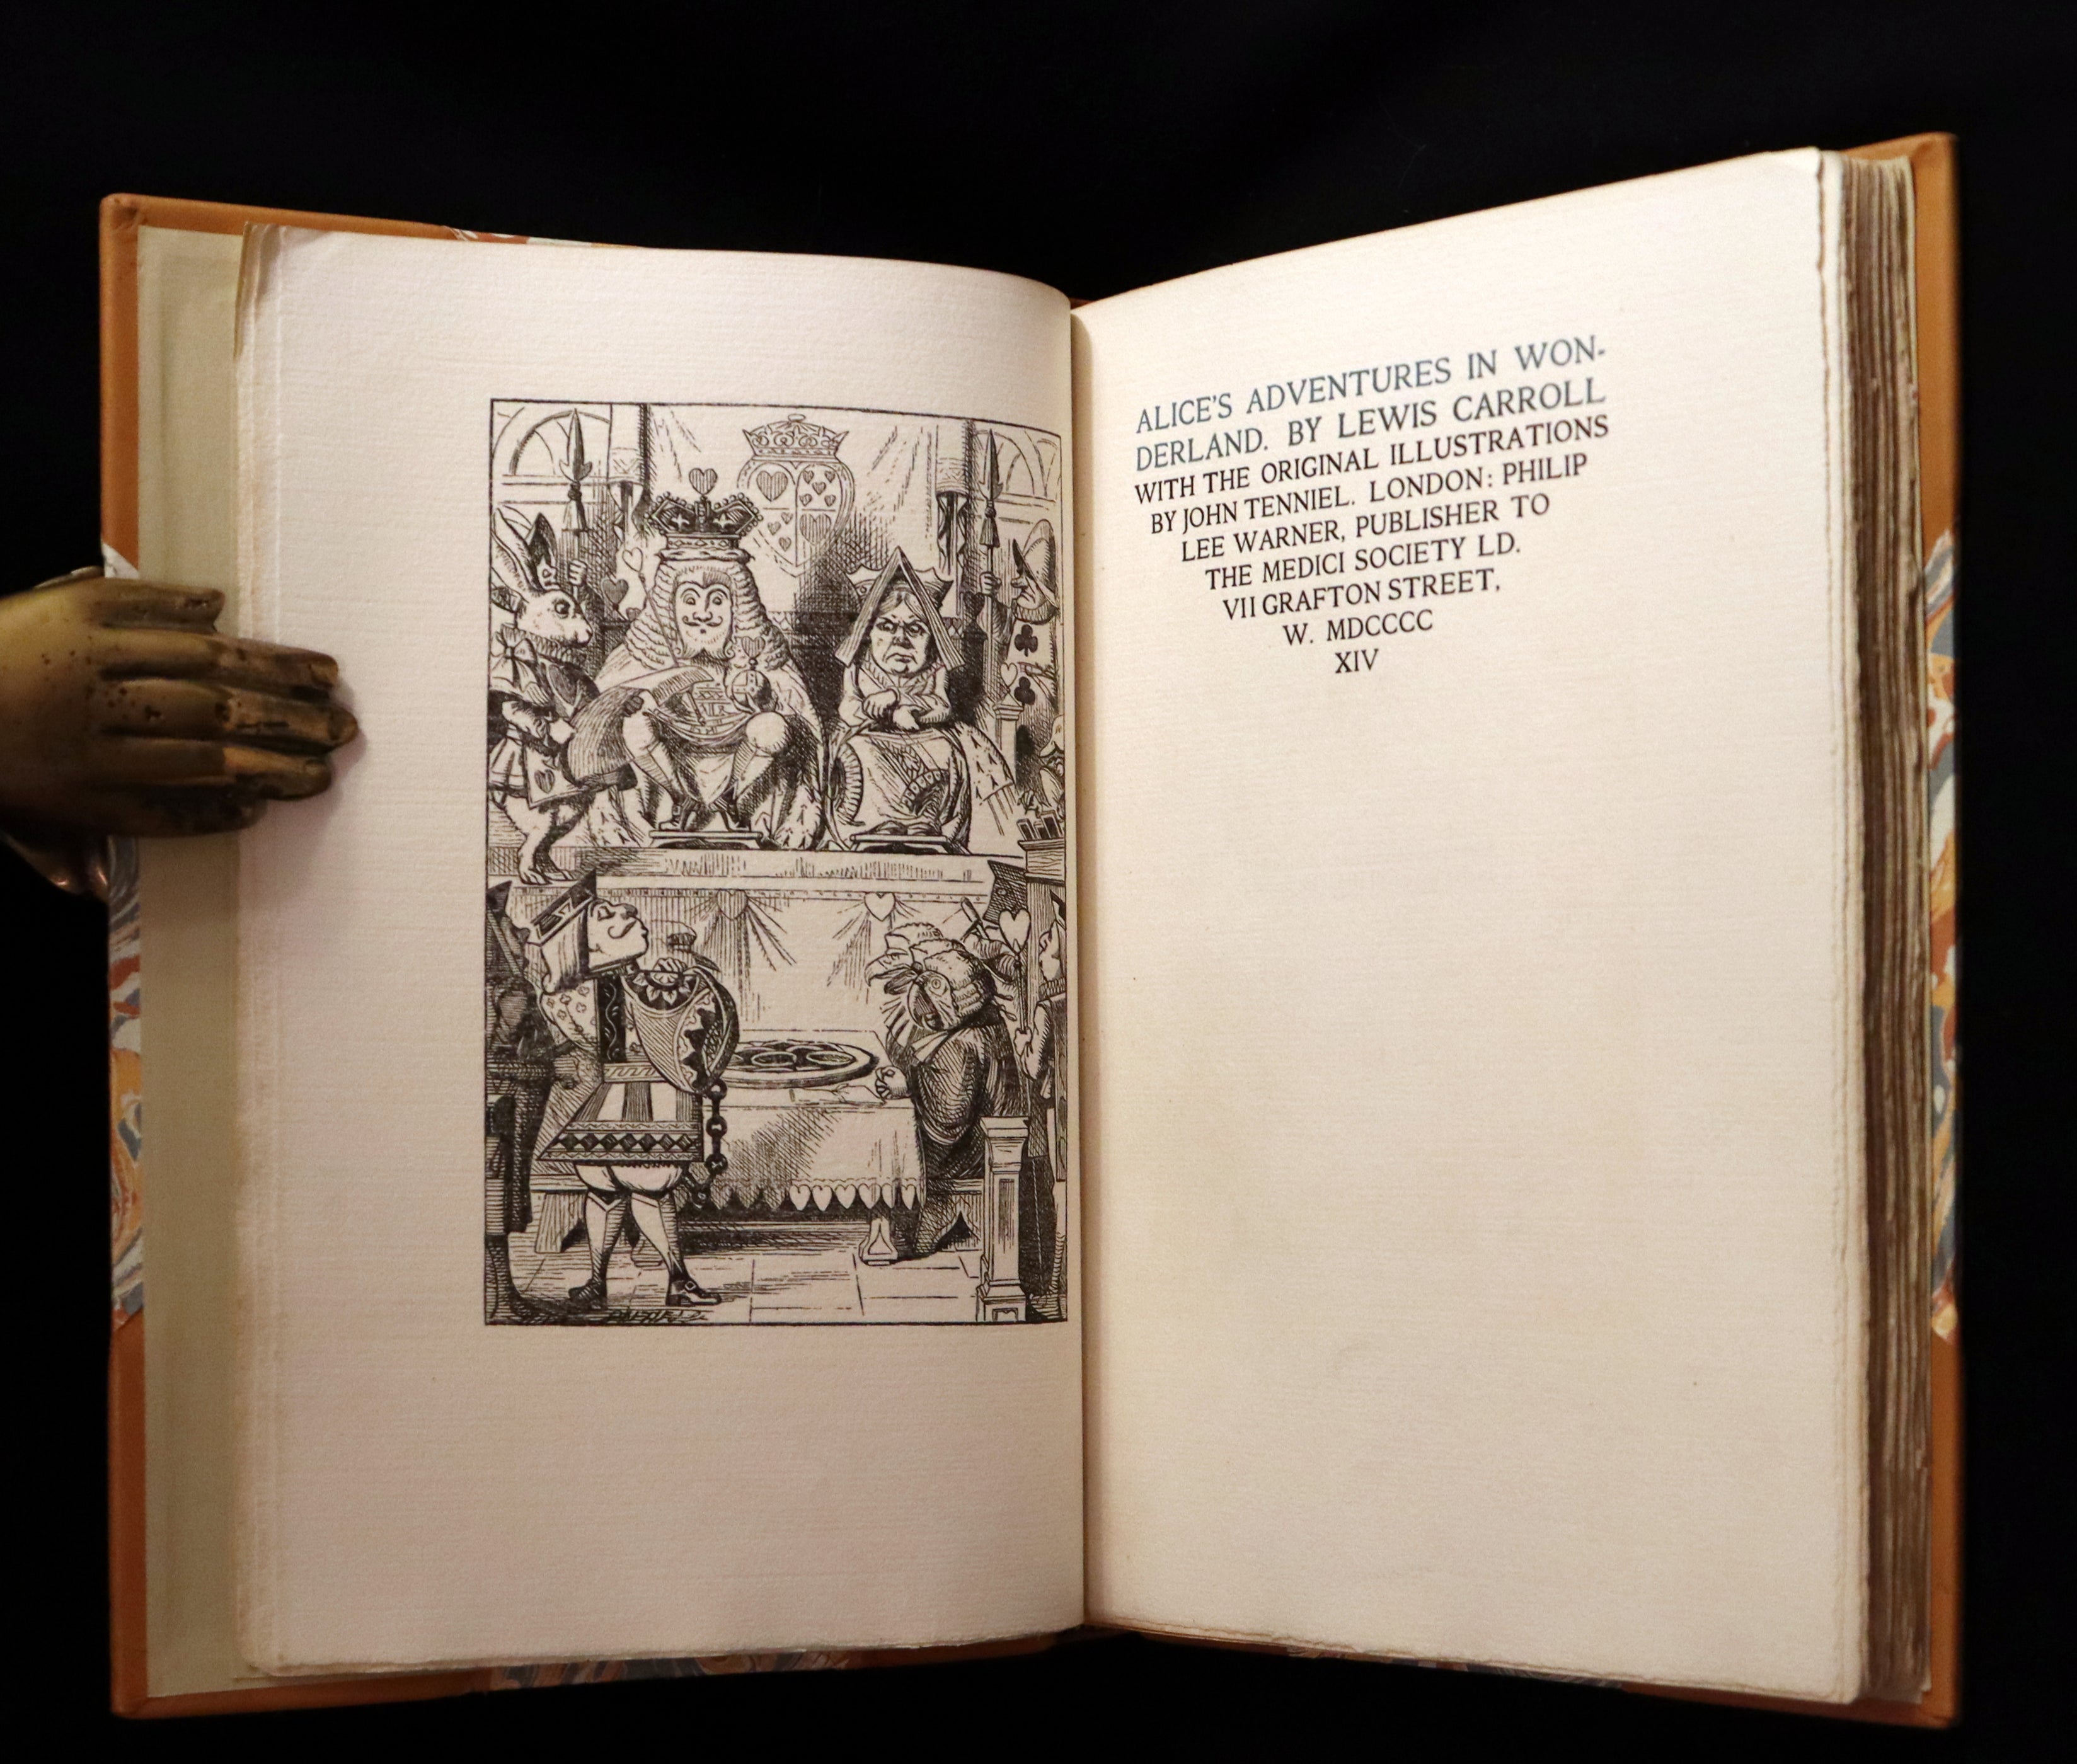 ALICE'S ADVENTURES IN WON-
DERLAND. BY LEWIS CARROLL
WITH THE ORIGINAL ILLUSTRATIONS
BY JOHN TENNIEL. LONDON: PHILIP
LEE WARNER, PUBLISHER TO
THE MEDICI SOCIETY LD.
VII GRAFTON STREET,
W. MDCCCC
XIV